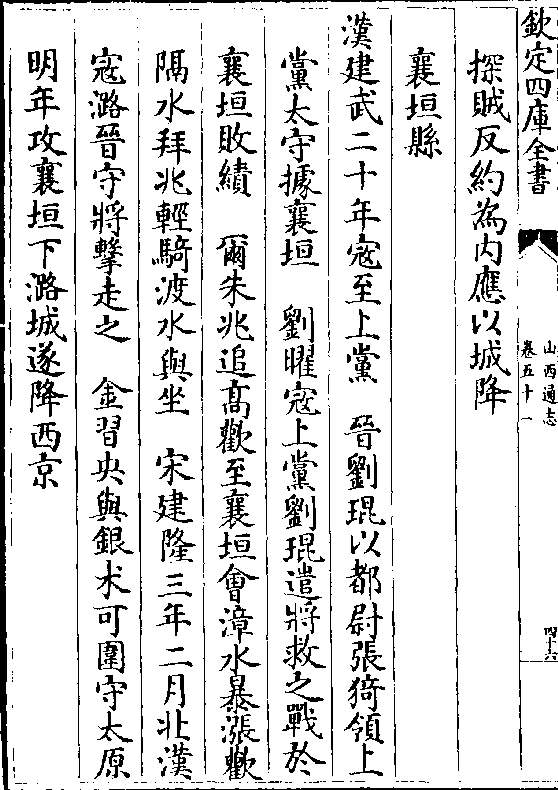 欽定四庫全書
山西通志
卷五十一
四十六
探賊反約為内應以城降
襄垣縣
漢建武二十年寇至上黨　晉劉琨以都尉張猗領上
黨太守據襄垣　劉曜寇上黨劉琨遣將救之戰於
襄垣敗績　爾朱兆追髙歡至襄垣會漳水暴漲歡
隔水拜兆輕騎渡水與坐　宋建隆三年二月北漢
寇潞晉守將擊走之　金習央與銀术可圍守太原
明年攻襄垣下潞城遂降西京